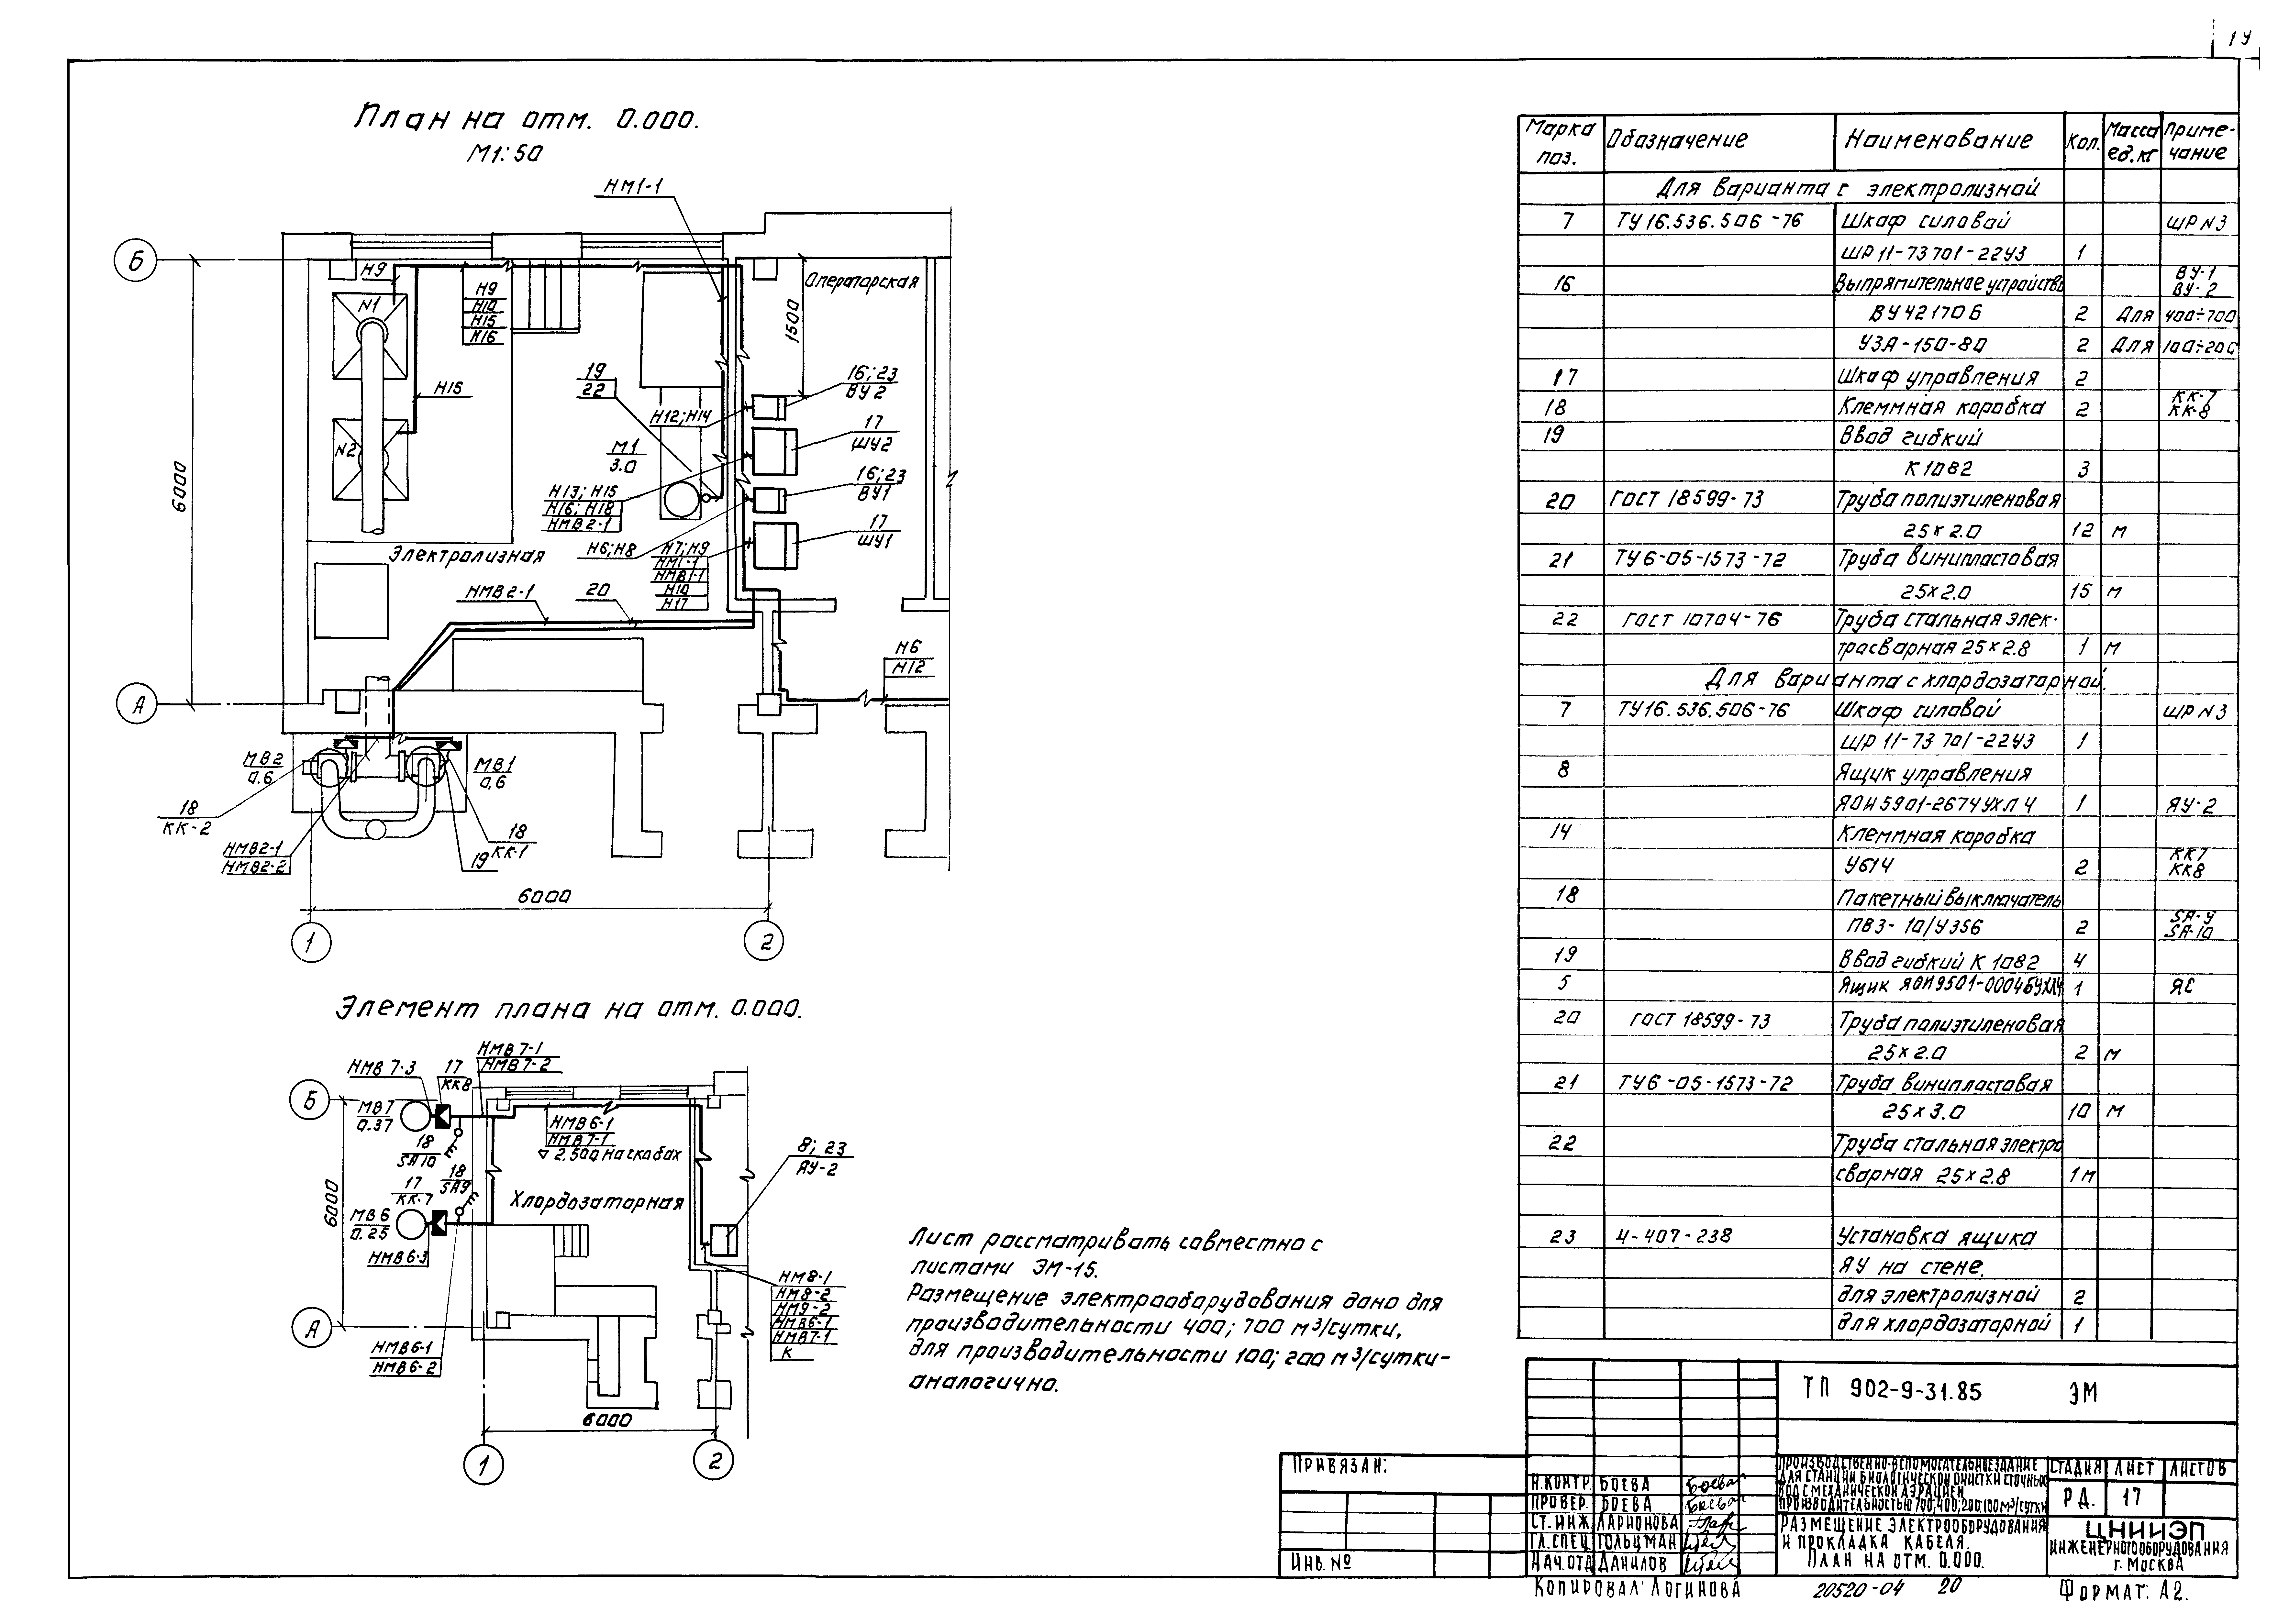 19
План на отм. 0.000.
М1:50
НМ1-1
Б
Н9
N1
Н9
Н10
Н15
Н16
Операторская
1500
19
22
16;23
ВУ2
Н15
Н12;Н14
17
ШУ2
N2
М1
3.0
6000
16;23
ВУ1
Н13; Н15
Н16; Н18
НМВ2-1
17
ШУ1
Электролизная
Н6;Н8
Н7;Н9
НМ1-1
НМВ1-1
Н10
Н17
НМВ2-1
20
Н6
Н12
А
МВ2
0.6
МВ1
0,6
18
КК-2
18
КК-1
НМВ2-1
НМВ2-2
19
6000
1
2
Элемент плана на отм. 0.000.
НМВ7-1
НМВ7-2
НМВ 7-3
17
КК8
Б
МВ7
0.37
НМВ6-1
НМВ7-1
2.500 на скобах
18
SA10
18
SA9
8; 23
ЯУ-2
17
КК-7
Хлордозаторная
6000
МВ6
0.25
НМВ6-3
НМ8-1
НМ8-2
НМ9-2
НМВ6-1
НМВ7-1
К
А
НМВ6-1
НМВ6-2
6000
1
2
Лист рассматривать совместно с
листами ЭМ-15.
Размещение электрооборудования дано для
производительности 400; 700 м³/сутки,
для производительности 100; 200 м³/сутки-
аналогично.
Марка поз. Обозначение Наименование Кол. Масса ед.кг Приме-чание
Для варианта с электролизной
7 ТУ16.536.506-76 Шкаф силовой ШР N3
ШР 11-73701-22У3 1
16 Выпрямительное устройство ВУ-1 ВУ-2
ВУ42170Б 2 Для 400÷700
УЗА-150-80 2 Для 100÷200
17 Шкаф управления 2
18 Клеммная коробка 2 КК-7 КК-8
19 Ввод гибкий
К1082 3
20 ГОСТ 18599-73 Труба полиэтиленовая
25×2.0 12 м
21 ТУ6-05-1573-72 Труба винипластовая
25×2.0 15 м
22 ГОСТ 10704-76 Труба стальная элек-
тросварная 25×2.8 1 м
Для варианта с хлордозаторной.
7 ТУ16.536.506-76 Шкаф силовой ШР N3
ШР 11-73 701-22У3 1
8 Ящик управления
ЯОИ5901-2674УХЛ4 1 ЯУ-2
14 Клеммная коробка
У614 2 КК7 КК8
18 Пакетный выключатель
ПВ3-10/У356 2 SA-9 SA-10
19 Ввод гибкий К 1082 4
5 Ящик ЯОИ9501-0004БУХЛ4 1 ЯС
20 ГОСТ 18599-73 Труба полиэтиленовая
25×2.0 2 м
21 ТУ6-05-1573-72 Труба винипластовая
25×3.0 10 м
22 Труба стальная электро
сварная 25×2.8 1м
23 4-407-238 Установка ящика
ЯУ на стене.
для электролизной 2
для хлордозаторной 1
ТП 902-9-31.85 ЭМ
Привязан:
Инв. №
Н.контр. Боева
Провер. Боева
Ст.инж. Ларионова
Гл.спец. Гольцман
Нач.отд Данилов
Производственно-вспомогательное здание
для станции биологической очистки сточных
вод с механической аэрацией
производительностью 700;400;200;100м³/сутки
Стадия Лист Листов
РД. 17
Размещение электрооборудования
и прокладка кабеля.
План на отм. 0.000.
ЦНИИЭП
инженерного оборудования
г. Москва
Копировал: Логинова
20520-04 20
Формат: А2.